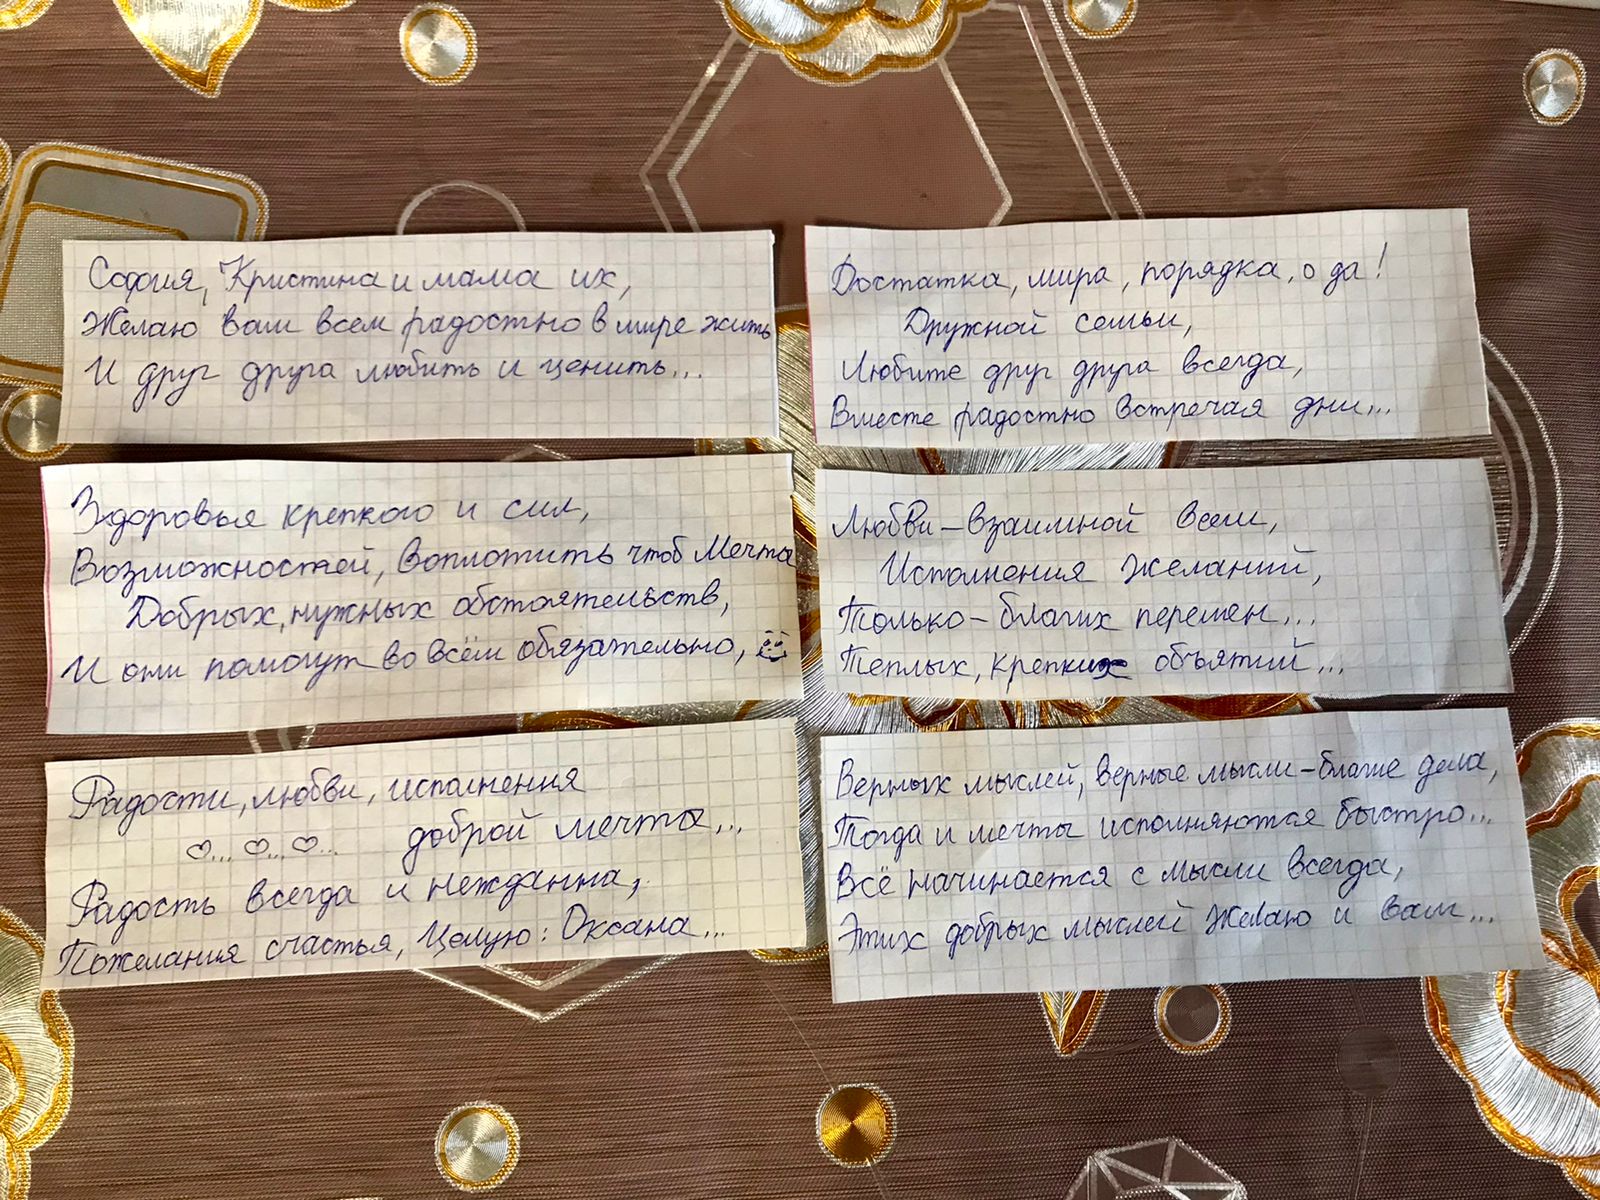 София, Кристина и мама их,
Желаю вам всем радостно в мире жить
И друг друга любить и ценить...
Достатка, мира, порядка, о да!
Дружной семьи,
Любите друг друга всегда,
Вместе радостно встречая дни...
Здоровья крепкого и сил,
Возможностей, воплотить чтоб Мечты
Добрых, нужных обстоятельств,
И они помогут во всём обязательно,
Любви-взаимной всем,
Исполнения желаний,
Только-благих перемен...
Теплых, крепких объятий...
Радости, любви, исполнения
доброй мечты...
Радость всегда и нежданна,
Пожелания счастья, Целую: Оксана...
Верных мыслей, верные мысли-благие дела,
Тогда и мечты исполняются быстро...
Всё начинается с мысли всегда,
Этих добрых мыслей желаю и вам...